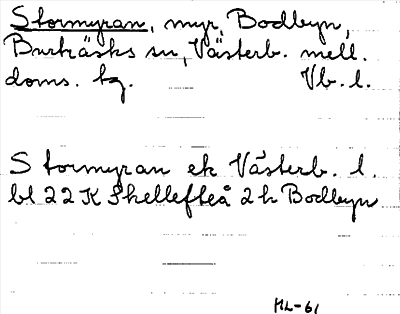 Stormyran, myr, Bodbyn,
Burträsks sn, Västerb. mell.
doms. tg. Vb. l.
Stormyran ek Västerb. l.
bl 22 K Skellefteå 2 h Bodbyn
ML-61